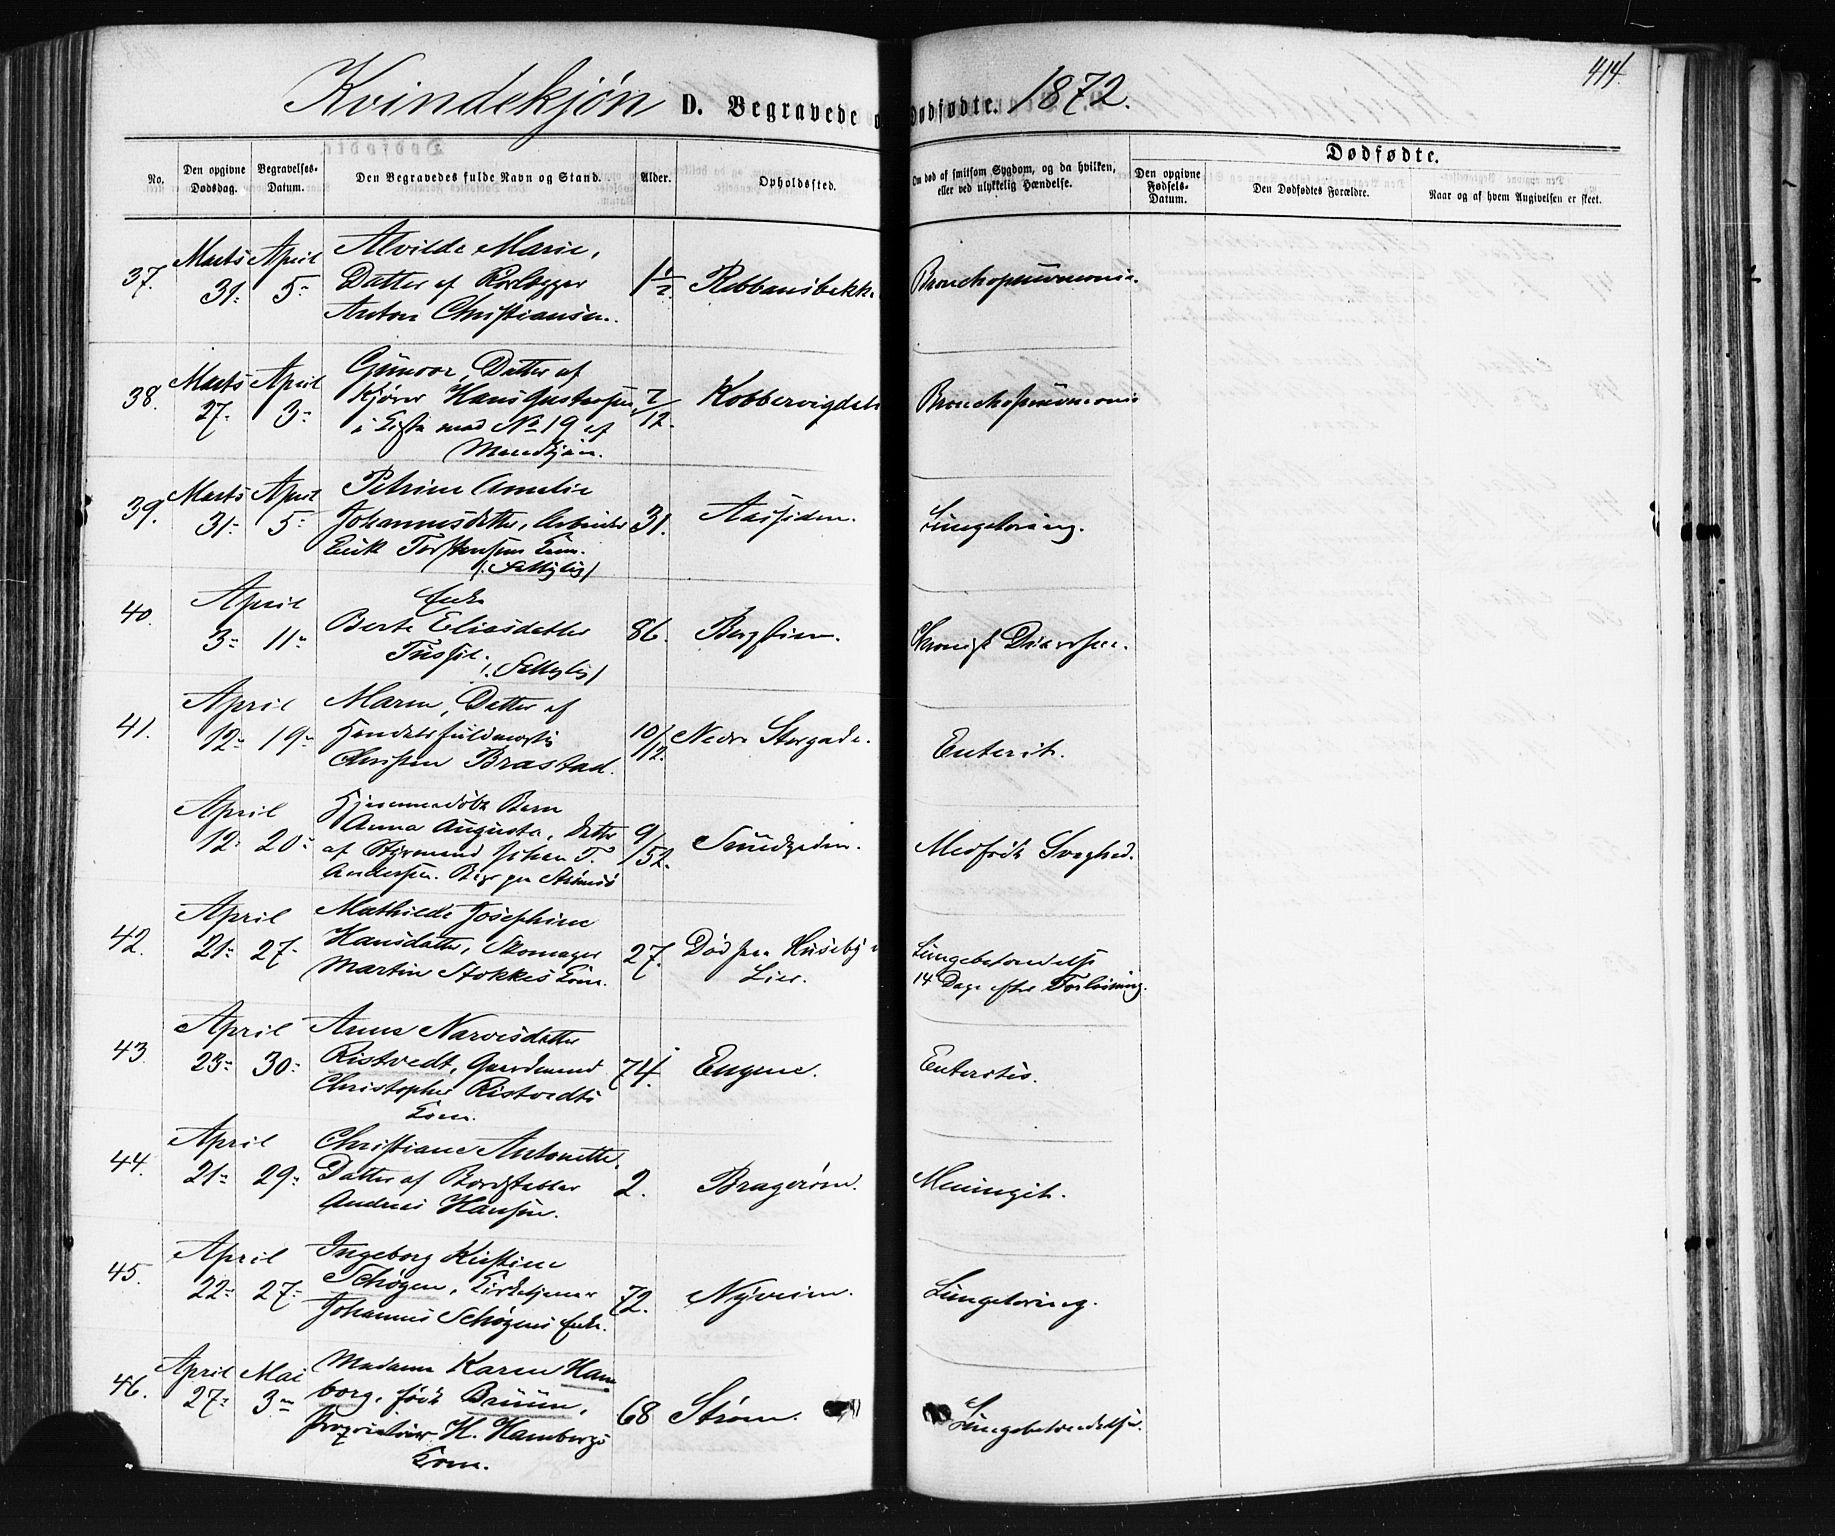 414
Kvindekjøn D. Begravede Dødfødte. 1872.
No. Den opgivne Dødsdag. Begravelses-Datum. Den Begravedes fulde Navn og Stand. Alder. Opholdssted. Om død af smitsom Sygdom, og da hvilken, eller ved ulykkelig Hændelse. Dødfødte. Den opgivne Fødsels-Datum. Den Dødfødtes Forældre. Naar og af hvem Angivelsen er skeet.
37. Marts 31. April 5. Alvilde Marie,
Datter af
Anton Christiansen. 1 1/2. Bronchopneumonie.
38. Marts 27. April 3. Gunvor, Datter af
Kjører Hans Gustavsen,
i Kiste med No 19 af
Mandkjøn. 7/12. Bronchopneumonie
39. Marts 31. April 5. Petrine Amelie
Johannesdatter, Arbeider
Erik Torstensens Kone.
(Fattiglig) 31. Aassiden. Lungetæring.
40. April 3. 11. Enke
Berte Eliasdatter
(Fattiglig) 86. Chronisk Diarrhee.
41. April 12. 19. Maren, Datter af
Handelsfuldmægtig
Christen Brastad. 10/12. Nedre Storgade. Enterit.
April 12. 20. Hjemmedøbt Barn
Anna Augusta, Datter
af Styrmand Johan T.
Andersen. Begr. paa Strømsø 9/52. Medfødt Svaghed.
42. April 21. 27. Mathilde Josephine
Hansdatter, Skomager
Martin Stokkes Kone. 27. Død paa Huseby i
Lier. Lungebetændelse
14 Dage efter Forløsning.
43. April 23. 30. Anne Narvesdatter
Ristvedt, Gaardmand
Christopher Ristvedts
Kone. 74. Engene. Enteritis.
44. April 21. 29. Christiane Antonette,
Datter af Bordstabler
Andreas Hansen. 2. Bragerøen. Meningit.
45. April 22. 27. Ingeborg Kirstine
Schøgen, Kirketjener
Johannes Schøgens Enke. 72. Nyveien. Lungetæring.
46. April 27. Mai 3. Madame Karen Ham
borg, født Bruun,
Proprietair H. Hamborgs
Kone. 68 Strøm. Lungebetændelse.